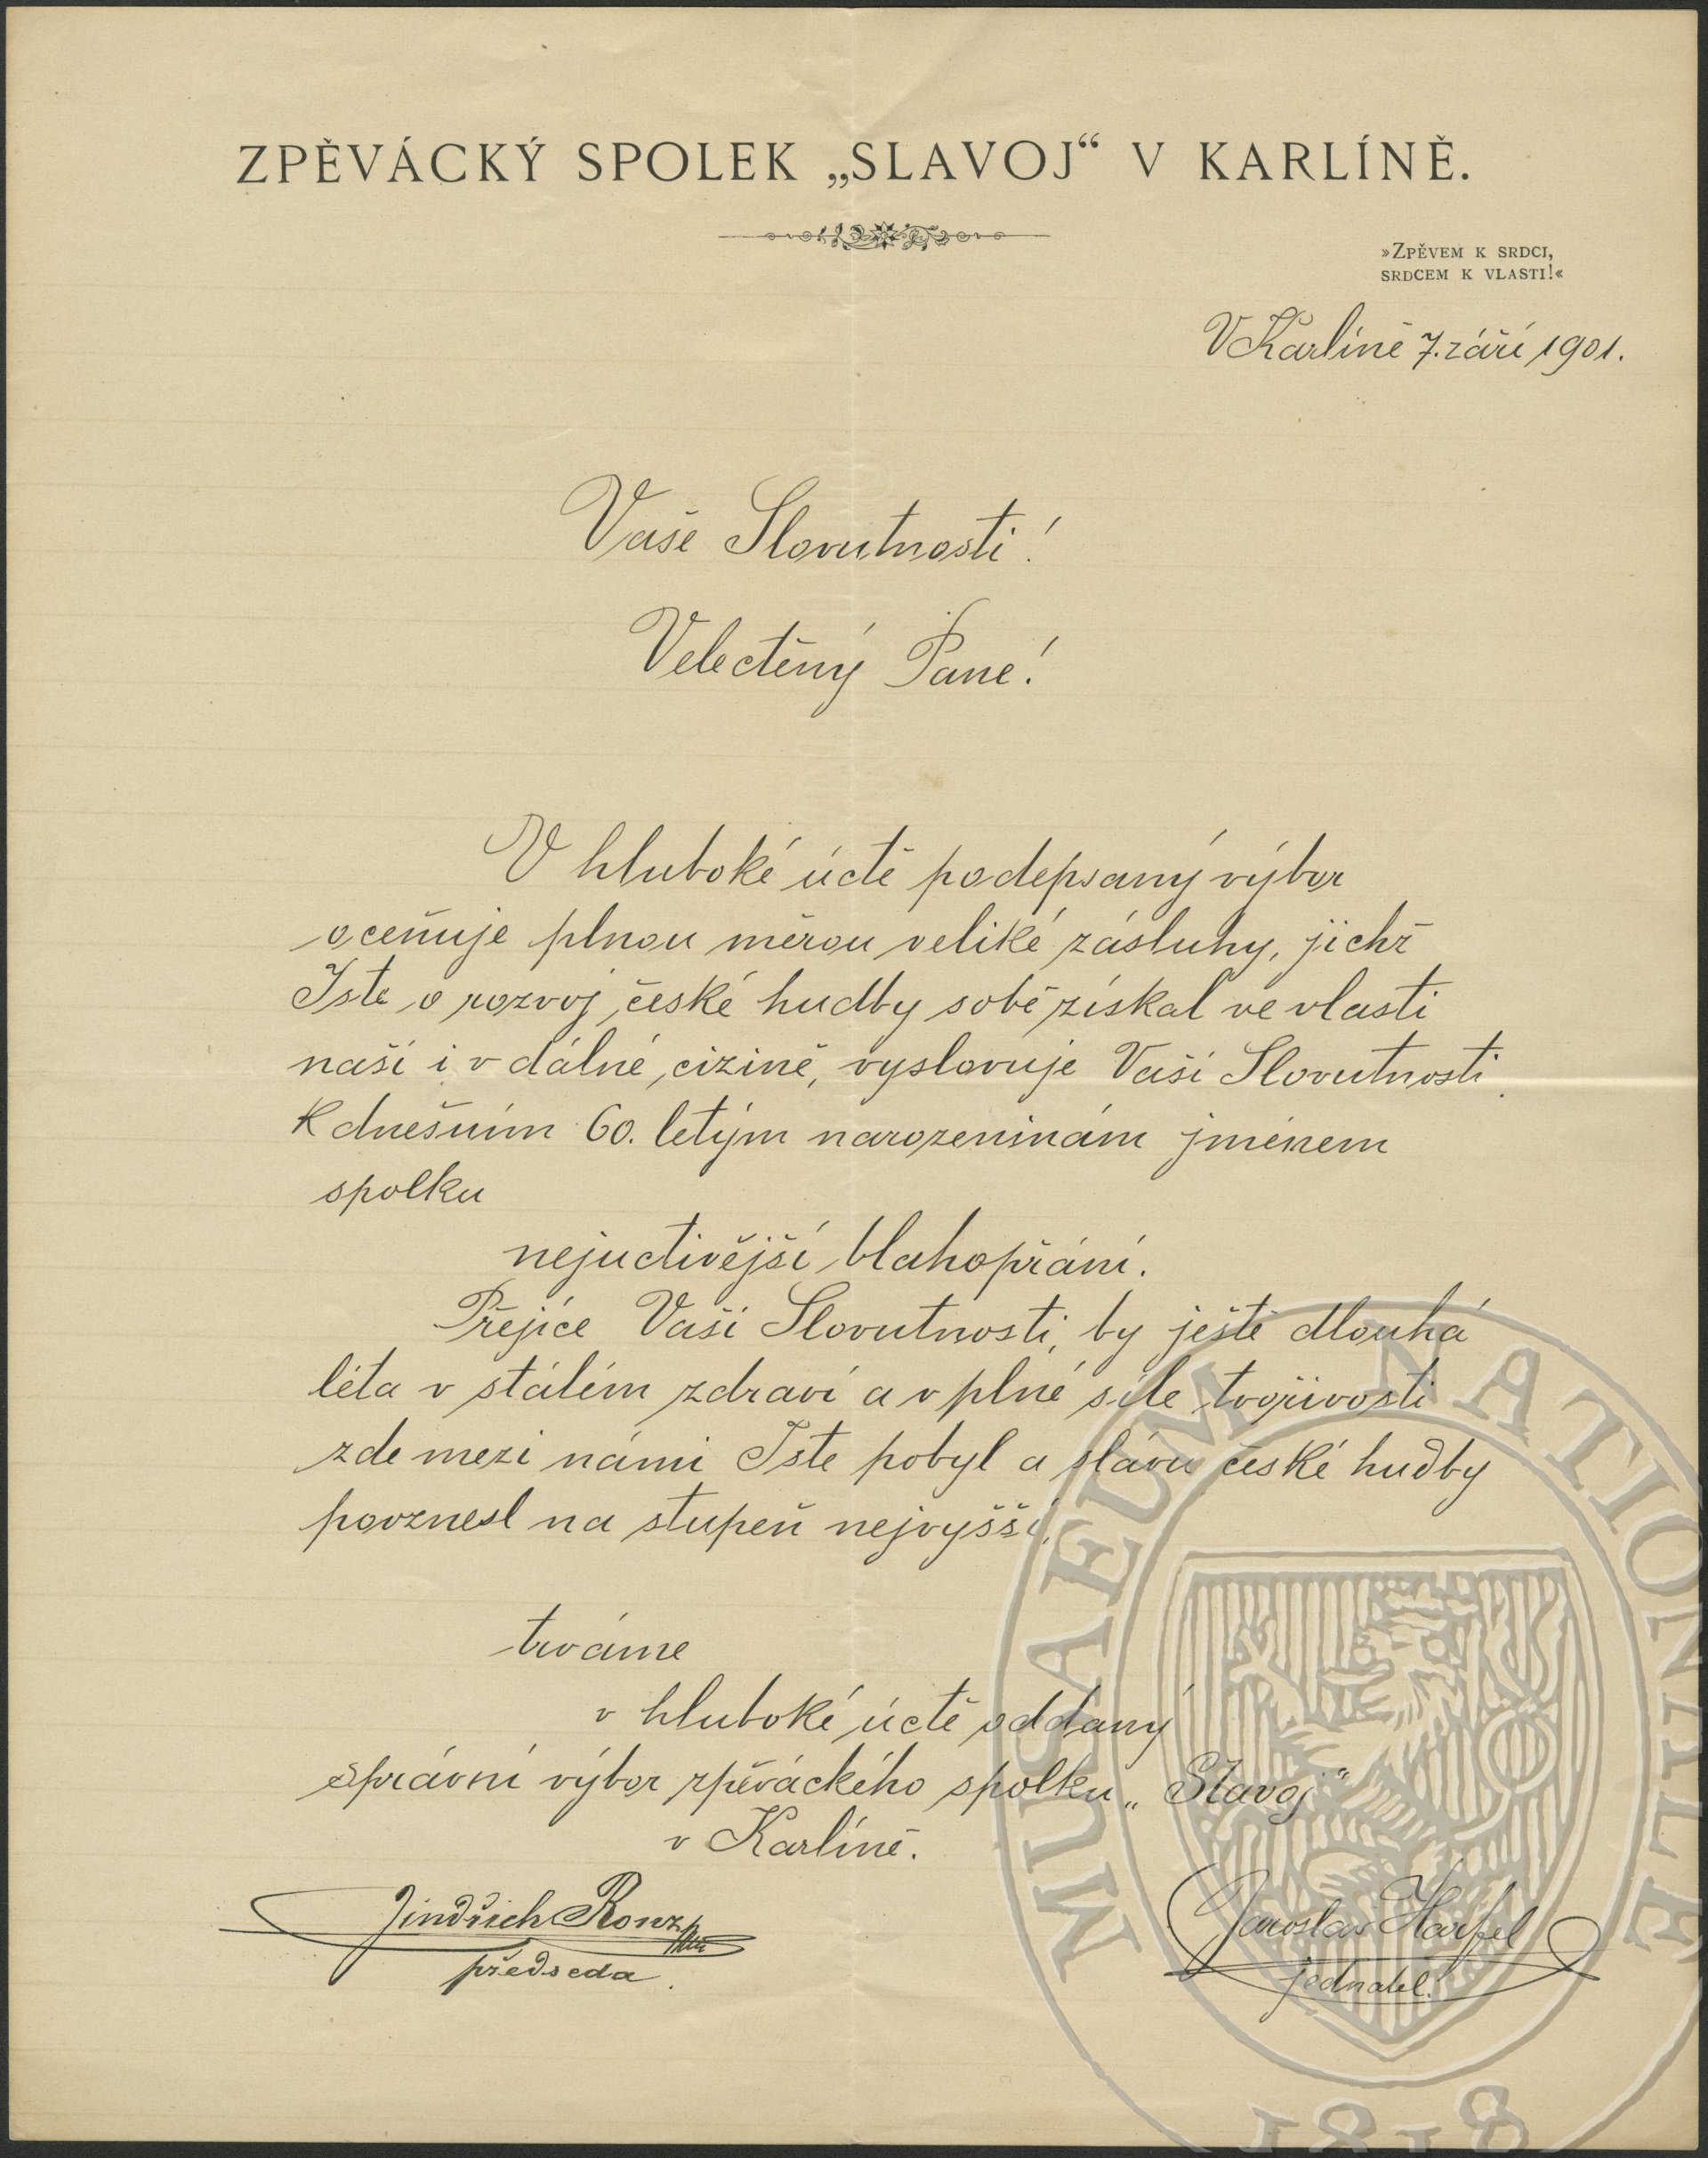 ZPĚVÁCKÝ SPOLEK „SLAVOJ“ V KARLÍNĚ.
»ZPĚVEM K SRDCI,
SRDCEM K VLASTI!«
V Karlíně 7. září 1901.
Vaše Slovutnosti!
Velectěný Pane!
V hluboké úctě podepsaný výbor
oceňuje plnou měrou veliké zásluhy, jichž
Jste o rozvoj české hudby sobě získal ve vlasti
naší i v dálné cizině, vyslovuje Vaší Slovutnosti
k dnešním 60. letým narozeninám jménem
spolku
nejuctivější blahopřání.
Přejíce Vaší Slovutnosti, by ještě dlouhá
léta v stálém zdraví a v plné síle tvořivosti
zde mezi námi Jste pobyl a slávu české hudby
povznesl na stupeň nejvyšší,
trváme
v hluboké úctě oddaný
správní výbor zpěváckého spolku „Slavoj“
v Karlíně.
Jindřich
předseda.
Jaroslav
jednatel.
MUSAEUM NATIONALE
1818